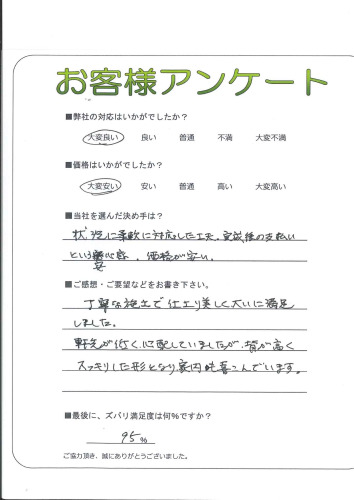 お客様アンケート
■弊社の対応はいかがでしたか？
大変良い 良い 普通 不満 大変不満
■価格はいかがでしたか？
大変安い 安い 普通 高い 大変高い
■当社を選んだ決め手は？
状況に柔軟に対応した工夫、完成後の支払い
という安心感、価格が安い。
■ご感想・ご要望などをお書き下さい。
丁寧な施工で仕上り美しく大いに満足
しました。
軒先が近く心配していましたが、背が高く
スッキリした形となり家内も喜こんでいます。
■最後に、ズバリ満足度は何％ですか？
95％
ご協力頂き、誠にありがとうございました。